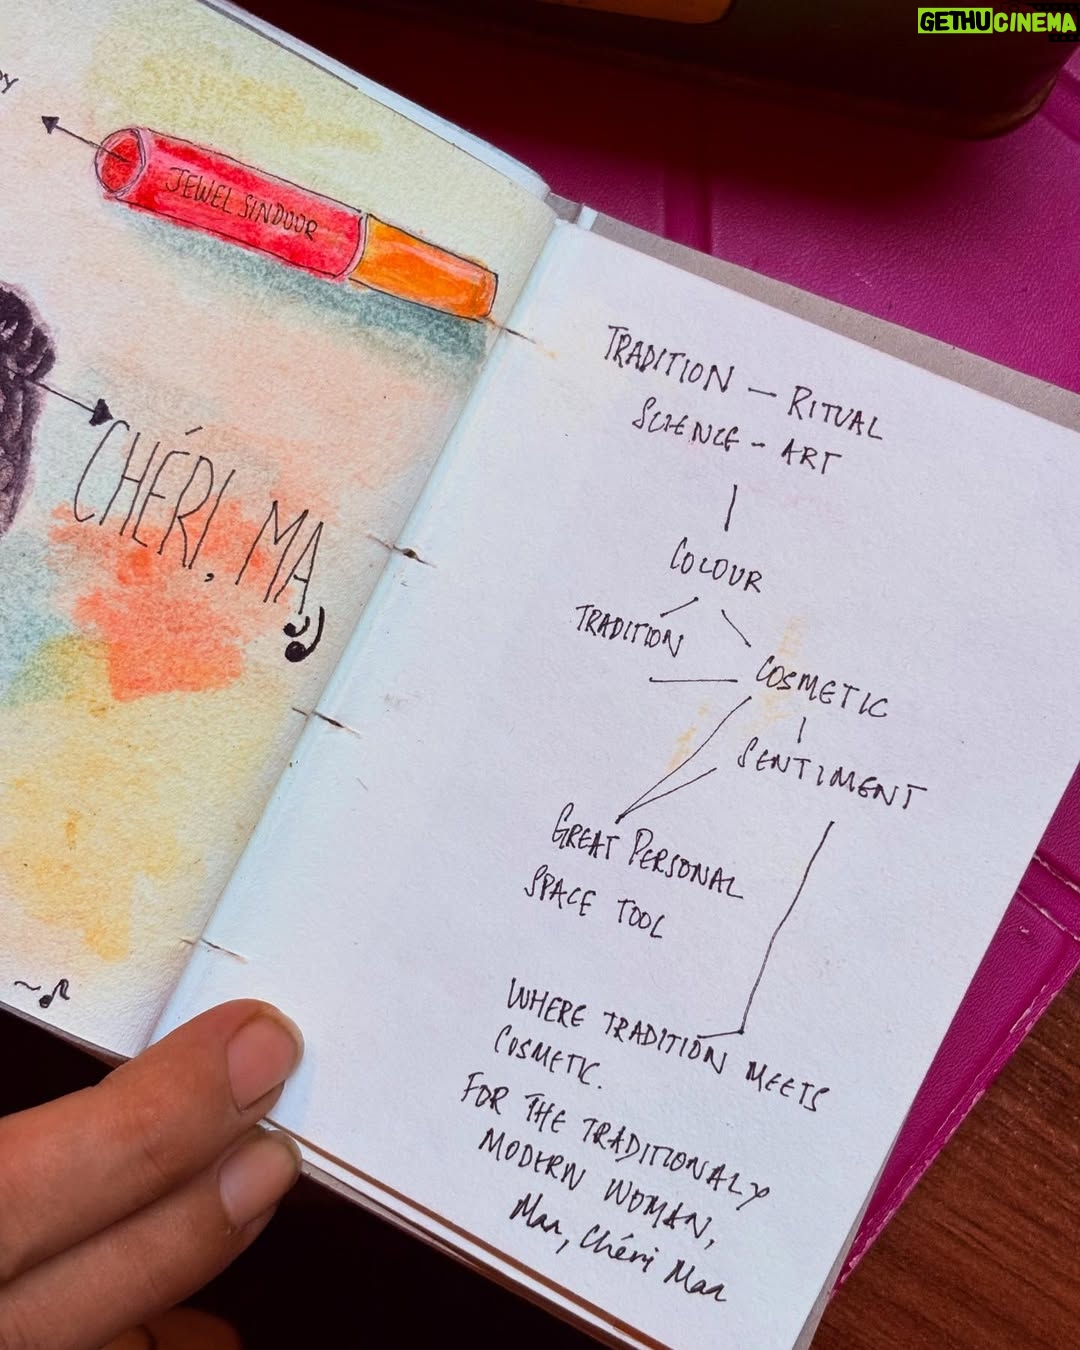 GETHUCINEMA
JEWEL SINDOOR
CHÉRI, MA
TRADITION — RITUAL
SCIENCE - ART
COLOUR
TRADITION
COSMETIC
SENTIMENT
GREAT PERSONAL
SPACE TOOL
WHERE TRADITION MEETS
COSMETIC.
FOR THE TRADITIONALY
MODERN WOMAN,
Maa, Chéri Maa